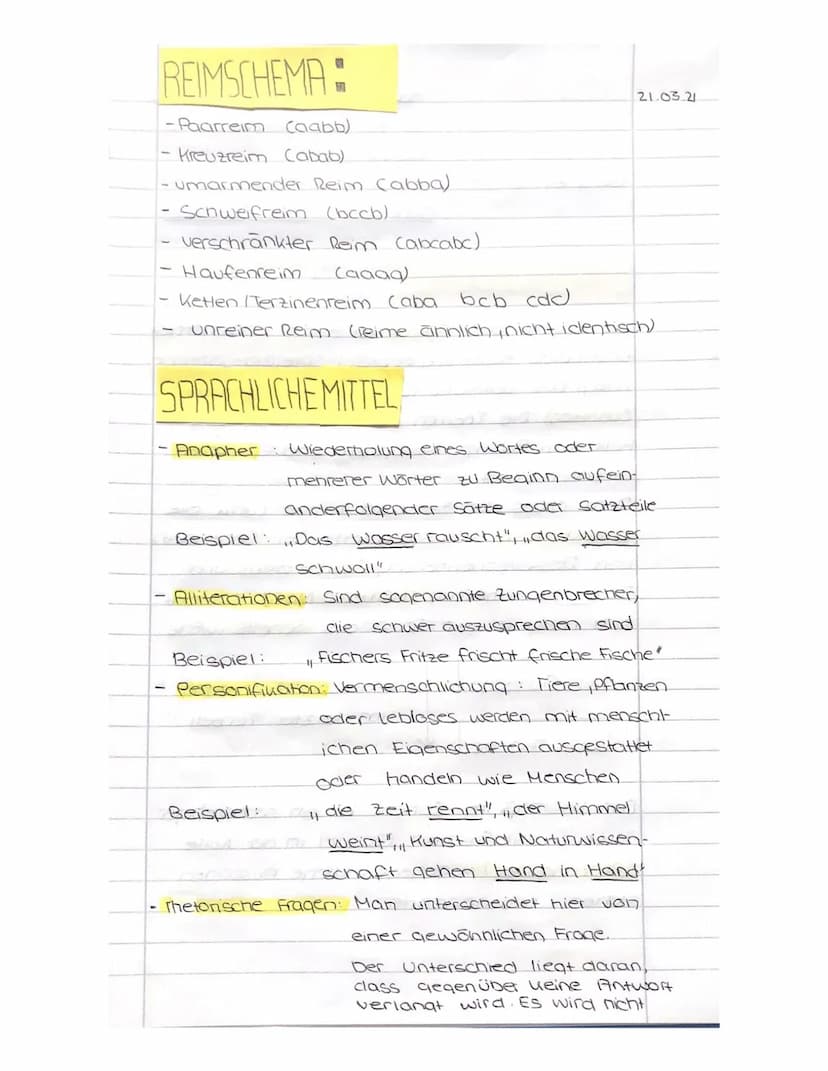 REIMSCHEMA:
21.03.21
- Paarreim (aabb)
- Kreuzreim (abab)
- umarmender Reim (abba)
- Schweifreim (bccb)
- verschränkter Reim (abcabc)
- Haufenreim (aaaa)
- Ketten/Terzinenreim (aba bcb cdc)
- unreiner Reim (reime ähnlich, nicht identisch)
SPRACHLICHE MITTEL
- Anapher : Wiederholung eines Wortes oder
mehrerer Wörter zu Beginn aufein-
anderfolgender Sätze oder Satzteile
Beispiel: „Das Wasser rauscht", „das Wasser
schwoll"
- Alliterationen: Sind sogenannte Zungenbrecher,
die schwer auszusprechen sind
Beispiel: „Fischers Fritze frischt frische Fische"
- Personifikation: Vermenschlichung : Tiere, Pflanzen
oder lebloses werden mit menschl-
ichen Eigenschaften ausgestattet
oder handeln wie Menschen
Beispiel: „die Zeit rennt", „der Himmel
weint", „Kunst und Naturwissen-
schaft gehen Hand in Hand"
- rhetorische Fragen: Man unterscheidet hier von
einer gewöhnlichen Frage.
Der Unterschied liegt daran,
dass gegenüber keine Antwort
verlangt wird. Es wird nicht